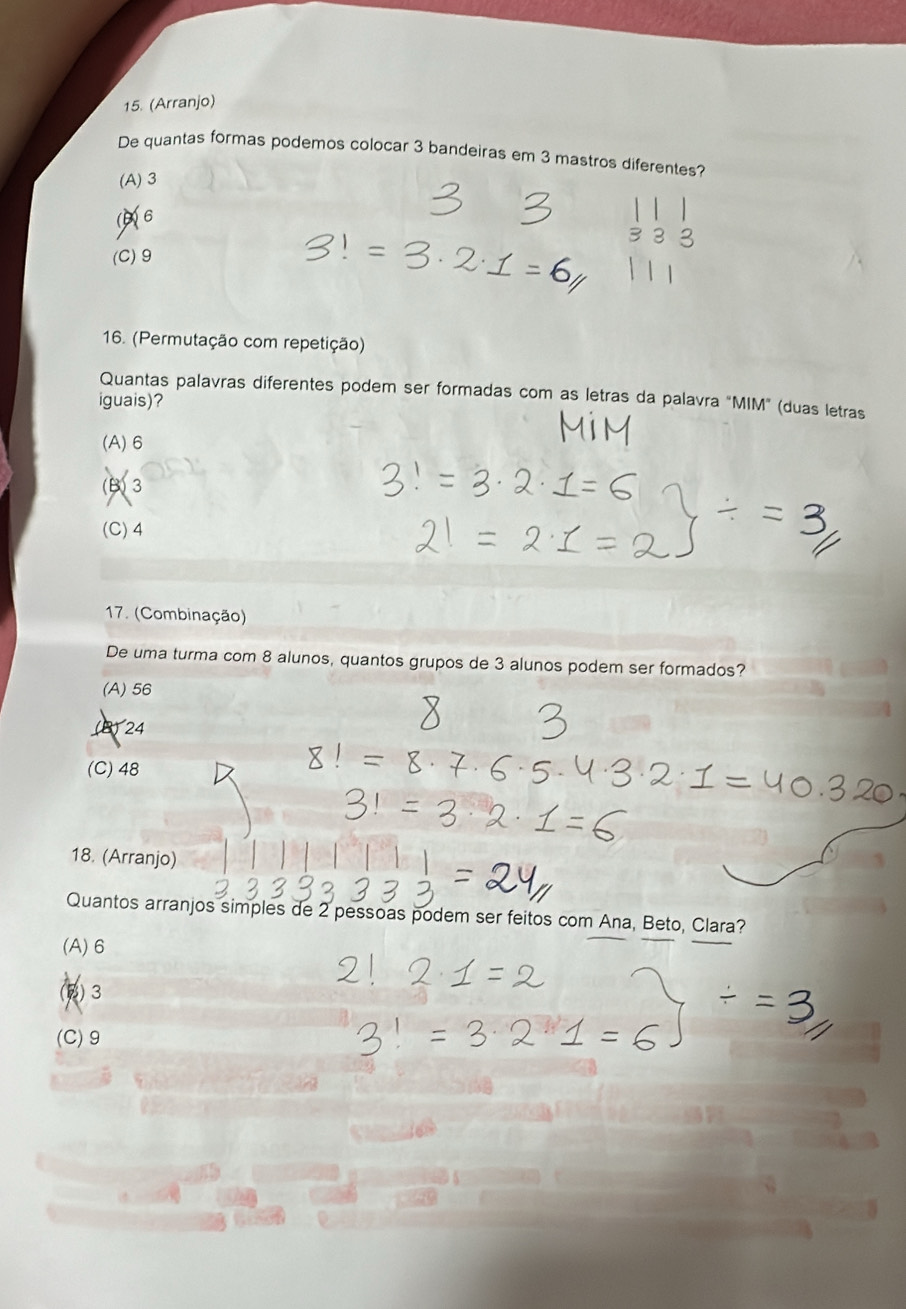 15. (Arranjo)
De quantas formas podemos colocar 3 bandeiras em 3 mastros diferentes?
(A) 3
3 3 | | |
(B) 6
3 3 3
(C) 9
3! = 3 · 2 · 1 = 6 | | |
16. (Permutação com repetição)
Quantas palavras diferentes podem ser formadas com as letras da palavra "MIM" (duas letras
iguais)?
MiM
(A) 6
3! = 3 · 2 · 1 = 6
(B) 3
÷ = 3
(C) 4
2! = 2 · 1 = 2
17. (Combinação)
De uma turma com 8 alunos, quantos grupos de 3 alunos podem ser formados?
(A) 56
8 3
(B) 24
(C) 48
8! = 8 · 7 · 6 · 5 · 4 · 3 · 2 · 1 = 40.320
3! = 3 · 2 · 1 = 6
18. (Arranjo)
| | | | | | | |
3 3 3 3 3 3 3 3 = 24
Quantos arranjos simples de 2 pessoas podem ser feitos com Ana, Beto, Clara?
(A) 6
2! 2 · 1 = 2
(B) 3
÷ = 3
(C) 9
3! = 3 · 2 · 1 = 6